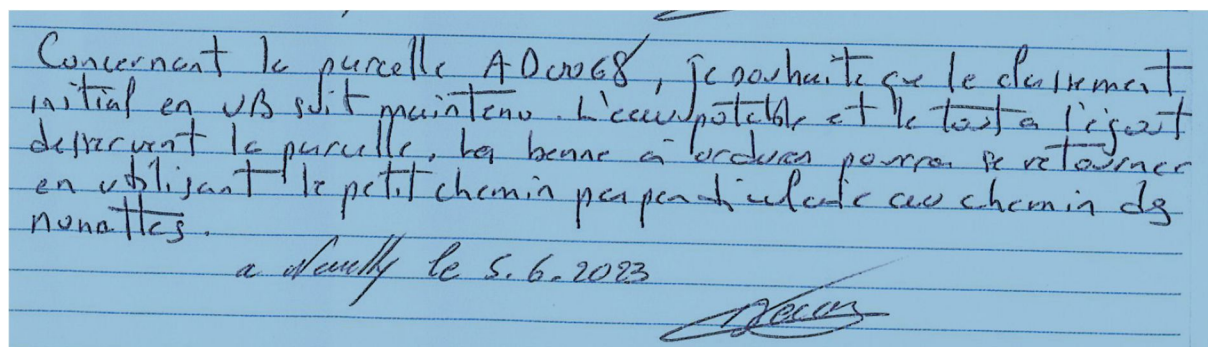 Concernant la parcelle AD0068, je souhaite que le classement
initial en UB soit maintenu. L'eau potable et le tout a l'égout
desservent la parcelle. La benne à ordures pourra se retourner
en utilisant le petit chemin perpendiculaire au chemin des
nonattes.
a Neuilly le 5.6.2023